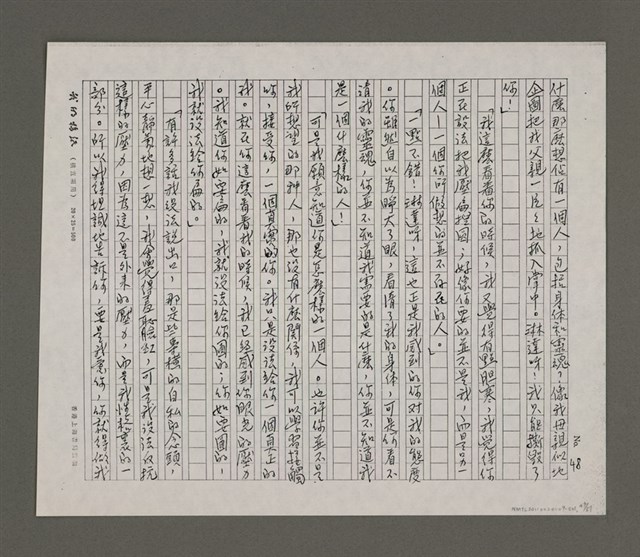 什麼那麼想佔有一個人,包括身体和靈魂,像我母親似地
企圖把我父親一片片地抓入掌中。淋達呀,我只能撕毀了
你!」
「我這麼看着你的時候,我又覺得有點胆寒,我覺得你
正在設法把我壓扁捏圓,好像你要的並不是我,而是另一
個人——一個你所假想的並不存在的人。」
「一點不錯!淋達呀,這也正是我感到的你對我的態度
。你雖然自以為睜大了眼,看清了我的身體,可是你看不
清我的靈魂,你並不知道我需要的是什麼,你並不知道我
是一個什麼樣的人!」
「可是我願意知道你是怎麼樣的一個人。也許你並不是
我所想望的那種人,那也沒有什麼關係,我可以學習接觸
你,接受你,一個真實的你。我只是沒法給你一個真正的
我。就在你這麼看着我的時候,我已經感到你眼光的壓力
。我知道你如要扁的,我就設法給你圓的;你如要圓的,
我就設法給你扁的。」
「有許多話我沒法說出口,那是些專橫的自私的念頭,
平心靜氣地想一想,我會覺得羞恥臉紅,可是我沒法反抗
這樣的壓力,因為這不是外來的壓力,而是我性格裏的一
部分。所以我得坦誠地告訴你,要是我愛你,你就得做我
48